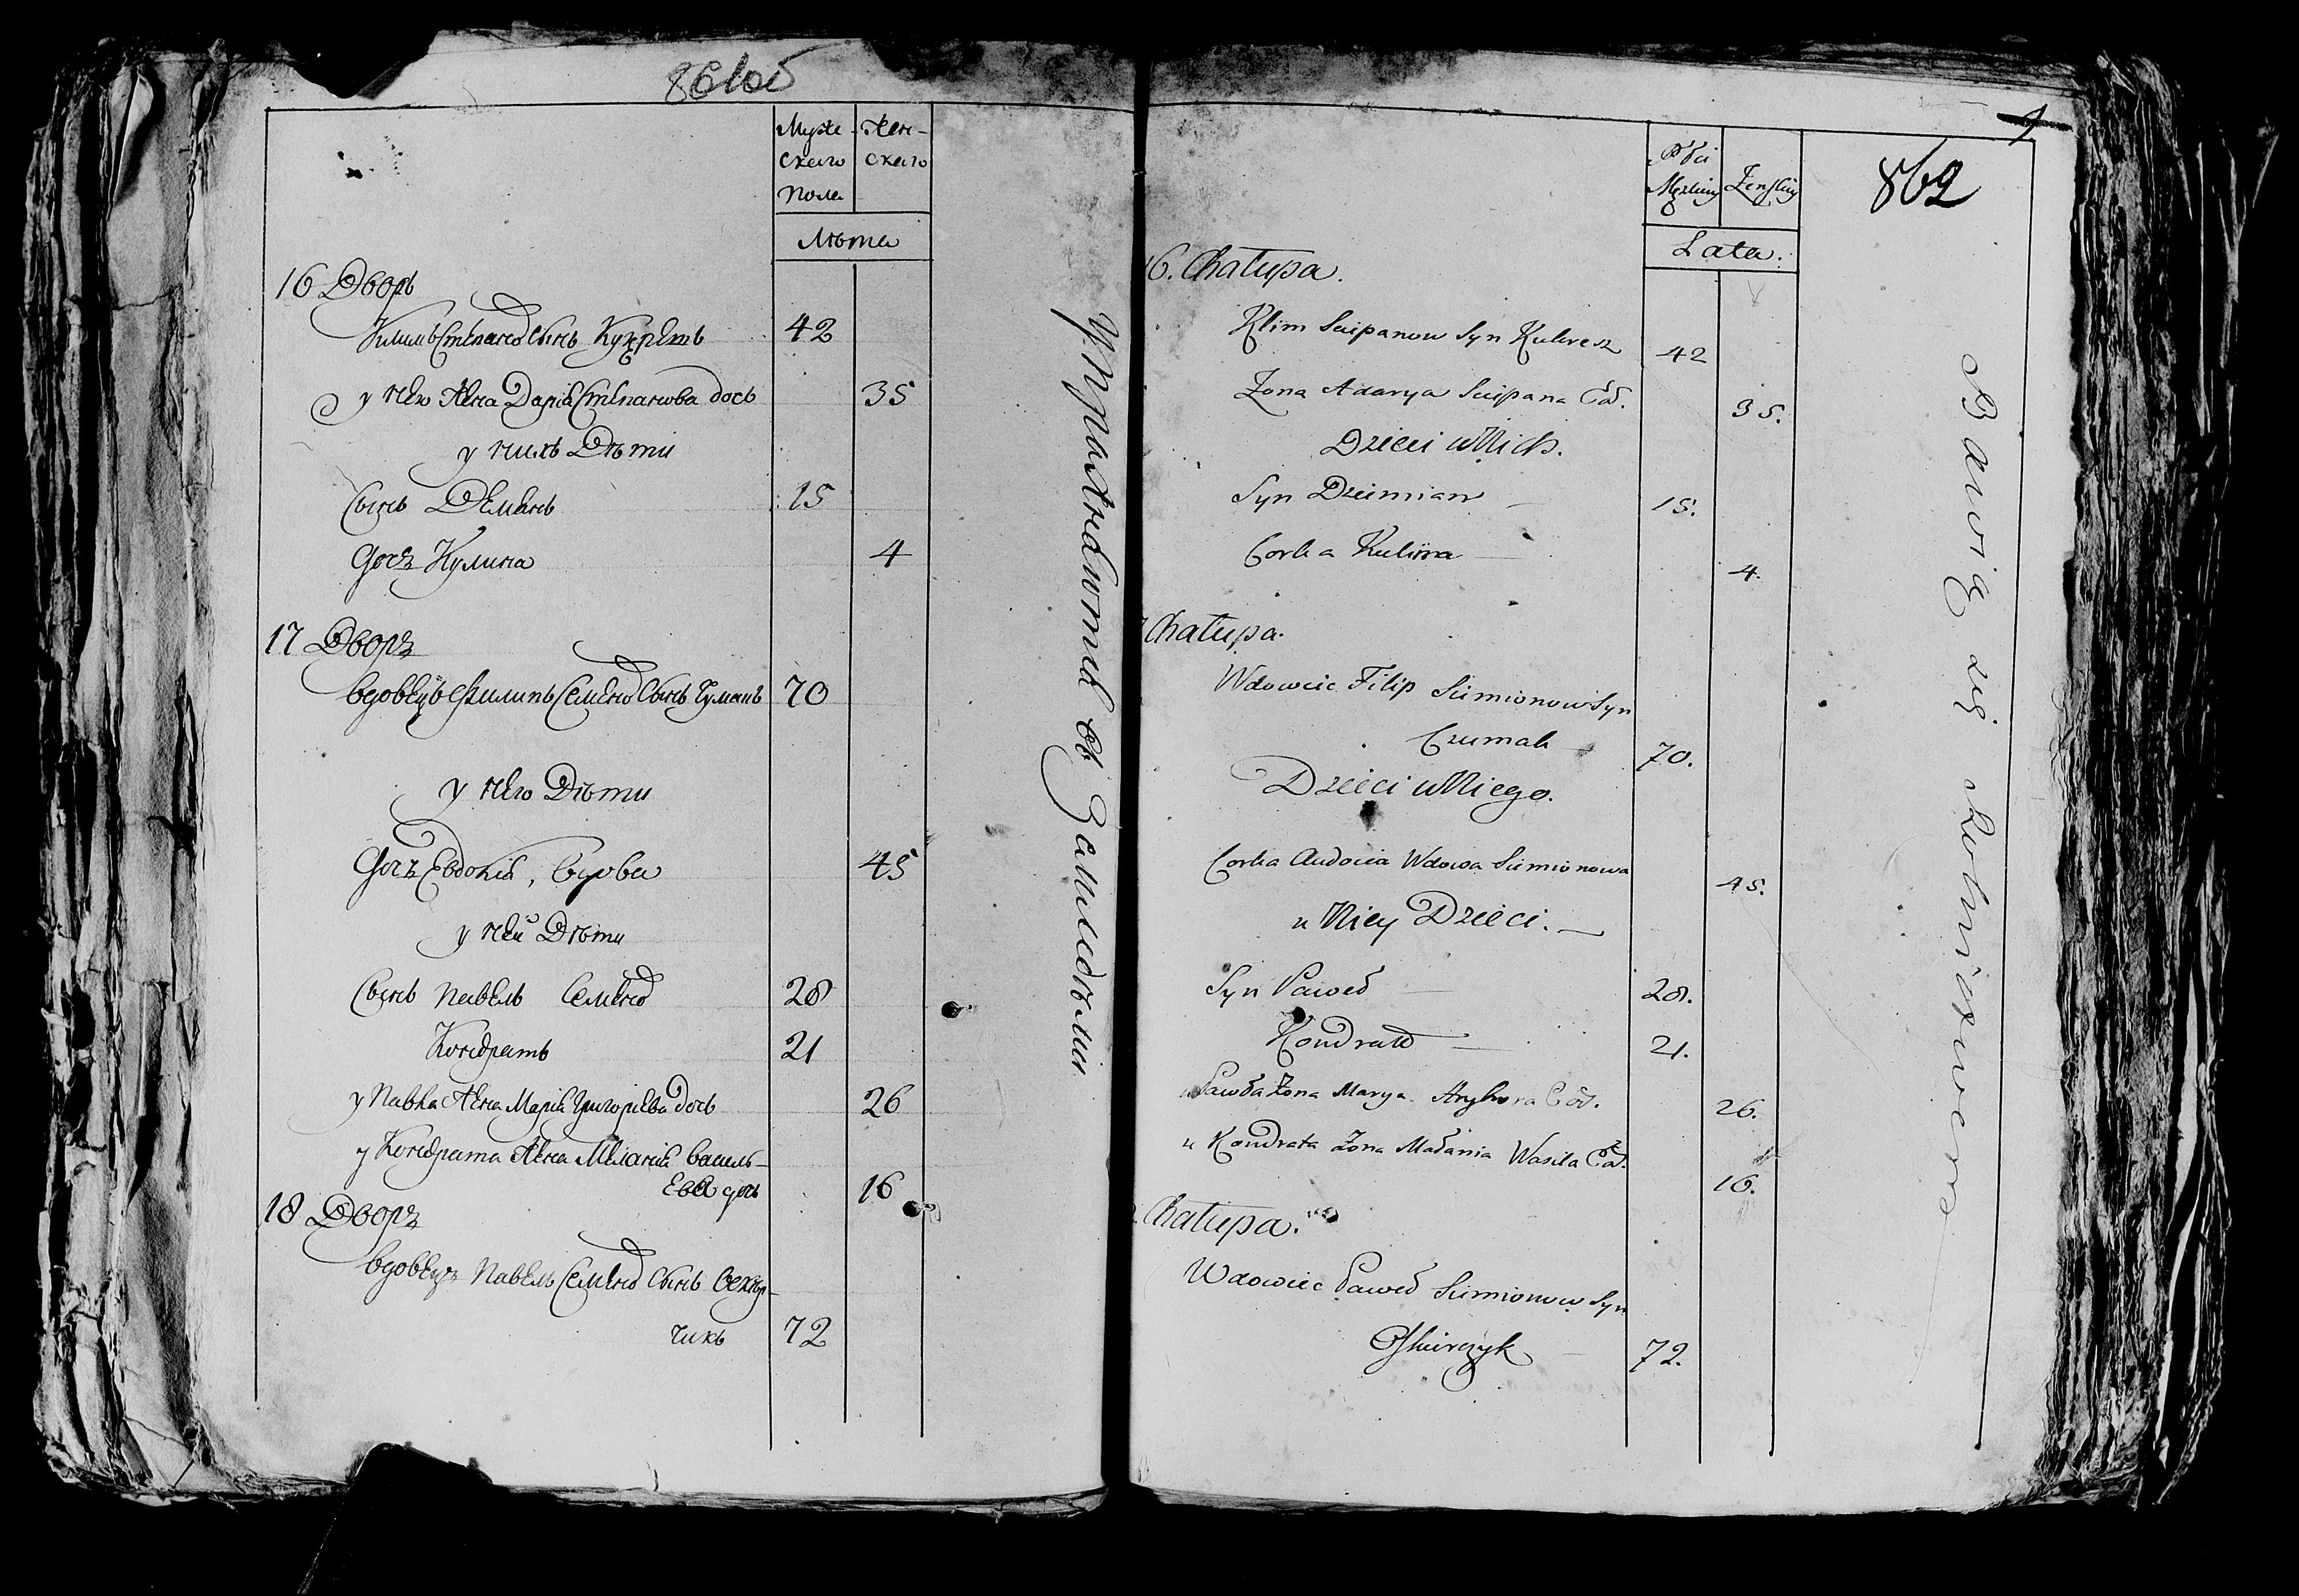 861об
Муже-
скаго
пола
Жен-
скаго
Лѣта
16 Дворъ
Климъ Степановъ Сынъ Кухрешъ 42
у него Жена Дарія Степанова дочь 35
у нихъ Дѣти
Сынъ Демянъ 15
Дочъ Кулина 4
17 Дворъ
вдовецъ Филипъ Семеновъ Сынъ Чумакъ 70
у него Дѣти
Дочъ Евдокія, вдова 45
у ней Дѣти
Сынъ Павелъ Семеновъ 28
Кондратъ 21
у Павла Жена Марія Григоріева дочь 26
у Кондрата Жена Меланія Василь-
ева дочь 16
18 Дворъ
вдовецъ Павелъ Семеновъ Сынъ
чикъ 72
Упражнѣюттся въ Земледѣліи
1
862
Płci
Męzkiey
Zenskiey
Lata.
16. Chałupa.
Klim Scipanow Syn Kuhresz 42
Zona Adarya Scipana Cór. 35.
Dzieci u Nich.
Syn Dziemian 15.
Corka Kulina 4.
Chałupa.
Wdowiec Filip Simionow Syn
Czumak 70.
Dzieci u Niego.
Corka Audocia Wdowa Simionowa 45.
u Niey Dzieci.
Syn Paweł 28.
Kondratt 21.
u Pawła Zona Marya Cór. 26.
u Kondrata Zona Małania Wasila Cór. 16.
Chałupa.
Wdowiec Paweł Simionow Syn
72.
Bawią się Rolnictwem